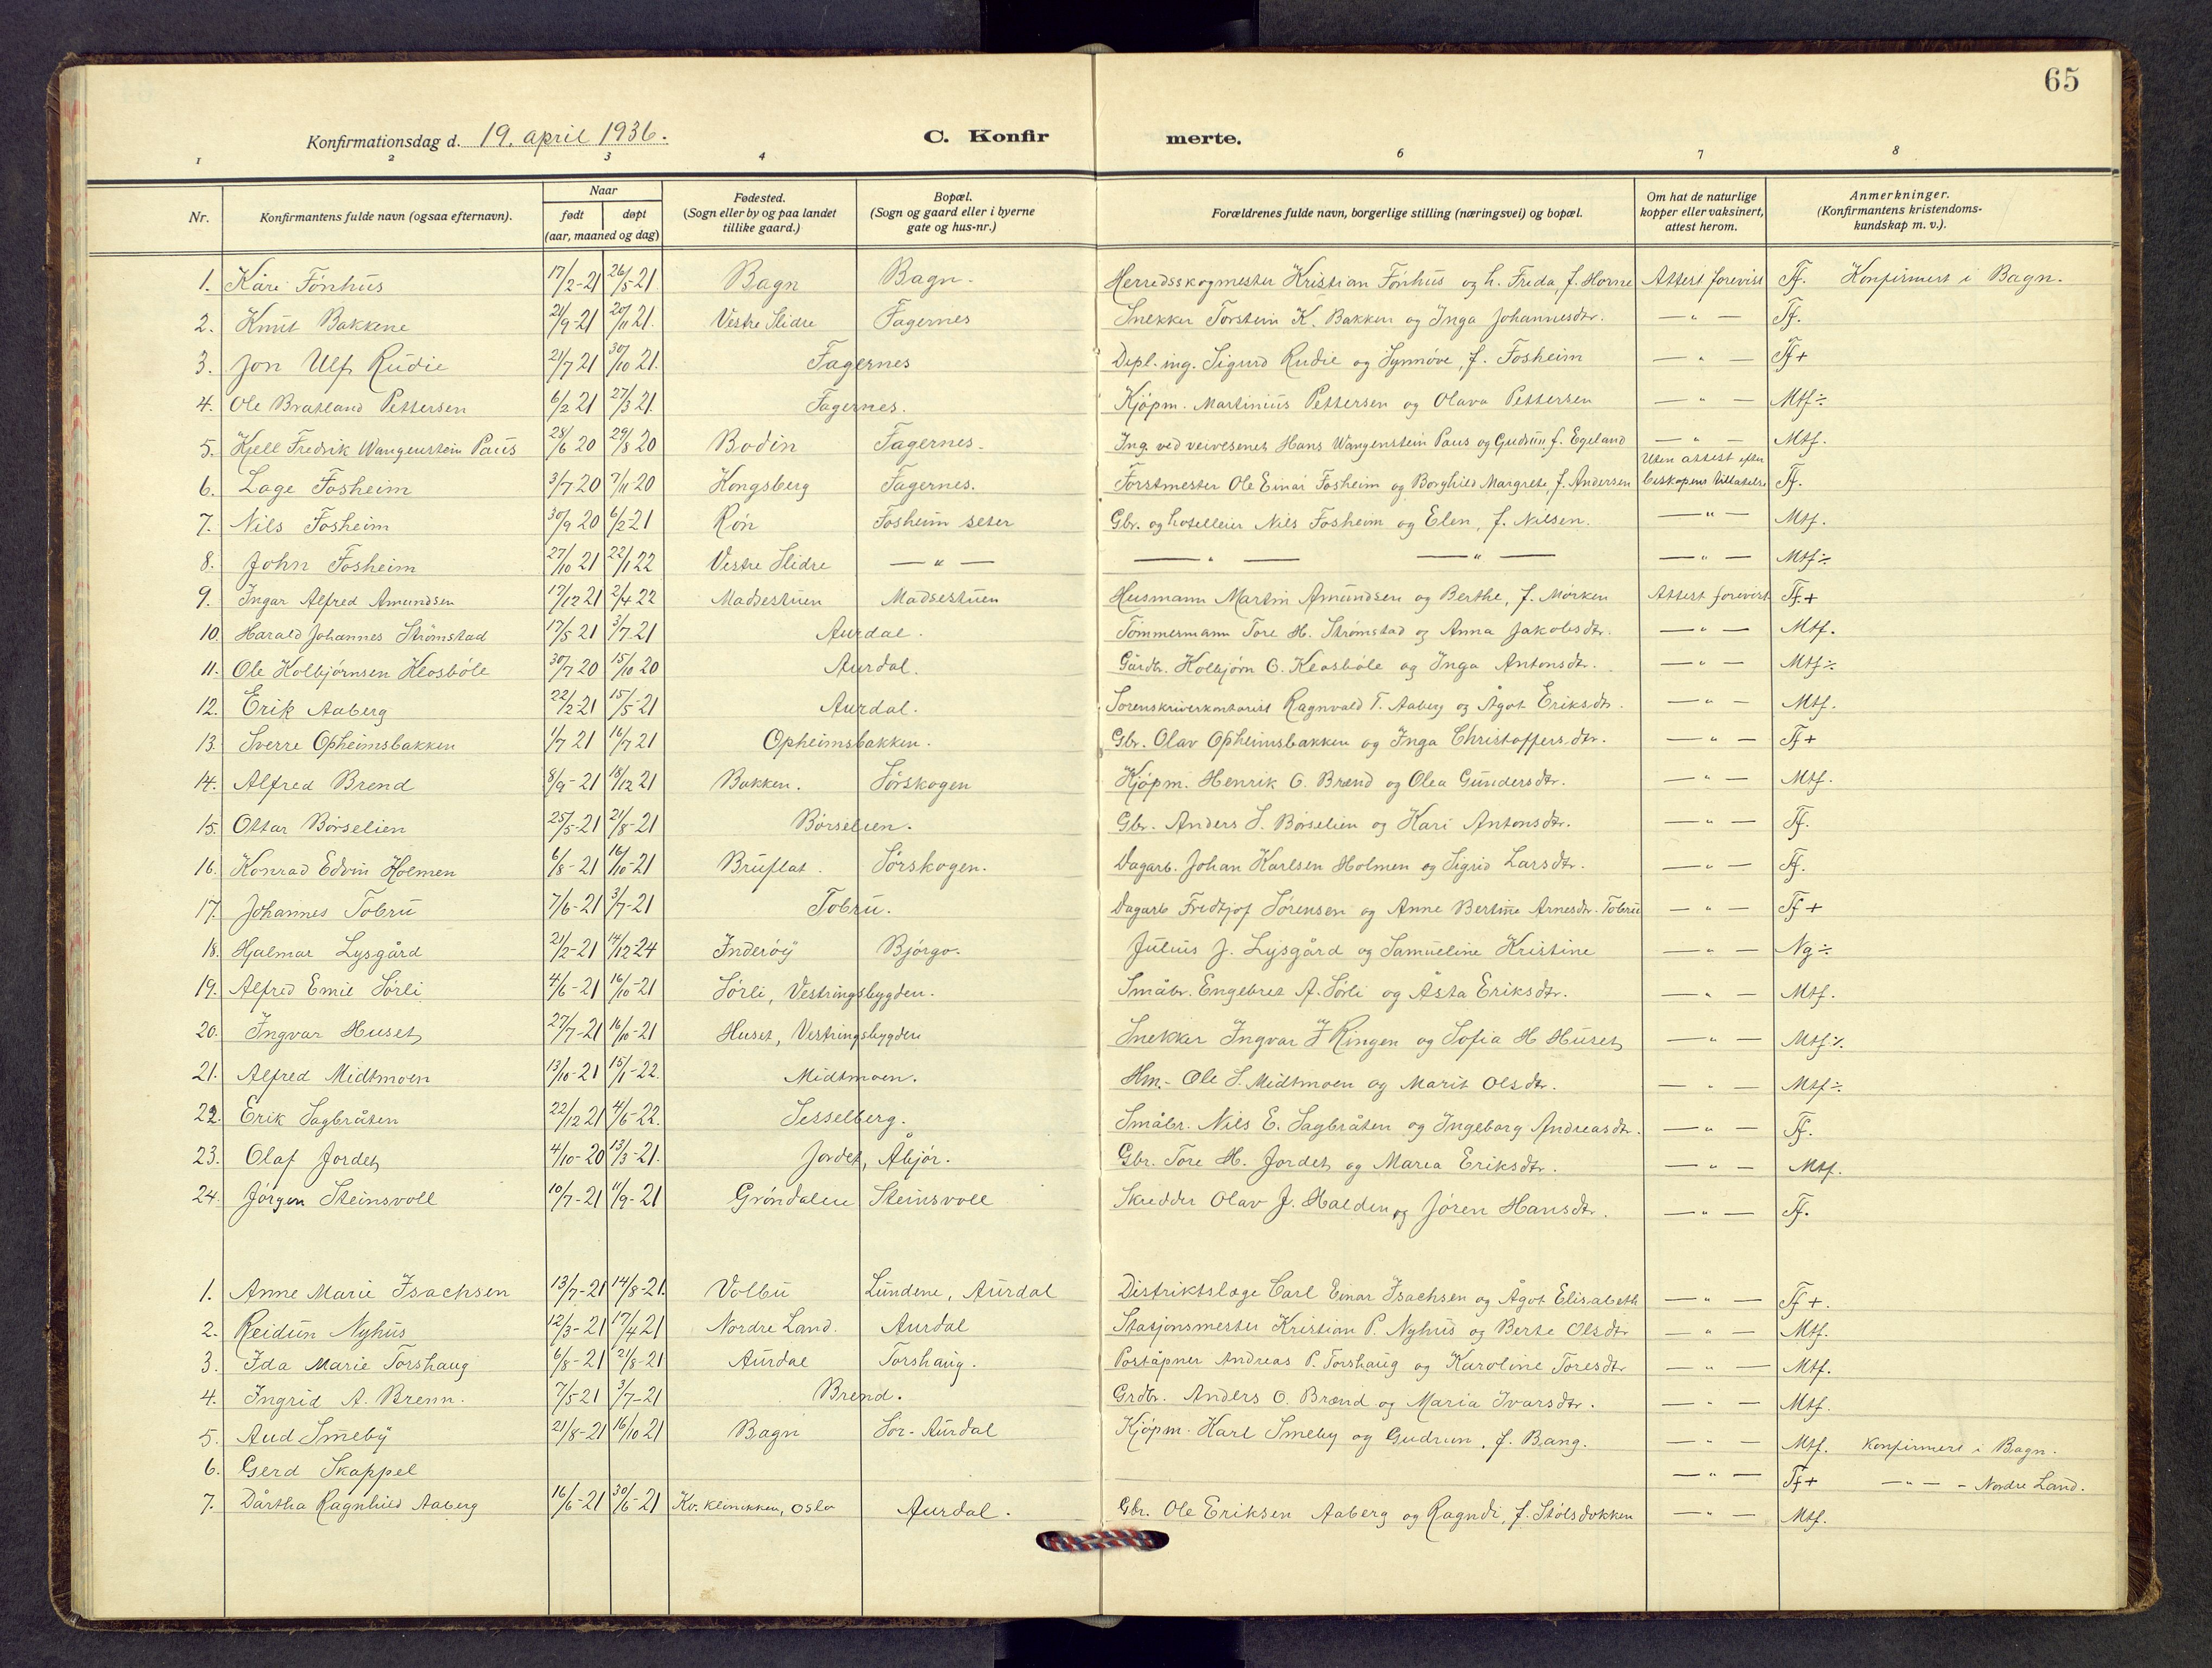 65
Konfirmationsdag d. 19. april 1936. C. Konfir merte.
1 2 3 4 6 7 8
Nr. Konfirmantens fulde navn (ogsaa efternavn). Naar født døpt (aar, maaned og dag) Fødested. (Sogn eller by og paa landet tillike gaard.) Bopæl. (Sogn og gaard eller i byerne gate og hus-nr.) Forældrenes fulde navn, borgerlige stilling (næringsvei) og bopæl. Om hat de naturlige kopper eller vaksinert, attest herom. Anmerkninger. (Konfirmantens kristendoms-kundskap m. v.).
1. Kåre Fønhus 17/2-21 26/5-21 Bagn Bagn. Herredsskogmester Kristian Fønhus og h. Frida, f. Horne Attest forevist Tf. Konfirmert i Bagn.
2. Knut Bakkene 21/9-21 20/11 21. Vestre Slidre Fagernes Snekker Torstein K. Bakken og Inga Johannesdtr. — " — Tf.
3. Jon Ulf Rudie 21/7 21 30/10 21. Fagernes Dipl. ing. Sigurd Rudie og Synnøve, f. Fosheim — " — Tf+
4. Ole Bratland Pettersen 6/2 21 27/3 21. Fagernes. Kjøpm. Martinius Pettersen og Olava Pettersen — " — Mtf÷
5. Kjell Fredrik Wangenstein Paus 28/6 20 29/8 20 Bodin Fagernes. Ing. ved veivesenet Hans Wangenstein Paus og Gudrun f. Egeland — " — Mtf.
6. Lage Fosheim 3/7 20 7/11-20 Kongsberg Fagernes. Forstmester Ole Einar Fosheim og Borghild Margrete, f. Andersen Uten attest efter biskopens tillatelse Tf.
7. Nils Fosheim 30/9 20 6/2-21 Røn Fosheim seter Gbr. og hotelleier Nils Fosheim og Elen, f. Nilsen. — " — Mtf.
8. John Fosheim 27/10 21 22/1 22 Vestre Slidre — " — — " — — " — — " — Mtf÷
9. Ingar Alfred Amundsen 17/12 21 2/4 22 Madsestuen Madsestuen Husmann Martin Amundsen og Berthe, f. Mørken Attest forevist Tf.+
10. Harald Johannes Strømstad 17/5 21 3/7-21 Aurdal. Tømmermann Tore H. Strømstad og Anna Jakobsdtr. — " — Mtf.
11. Ole Kolbjørnsen Kleosbøle 30/7 20 15/10 20 Aurdal. Gårdbr. Kolbjørn O. Kleosbøle og Inga Antonsdtr. — " — Mtf÷
12. Erik Aaberg 22/2-21 15/5-21 Aurdal. Sorenskriverkontorist Ragnvald T. Aaberg og Ågot Eriksdtr. — " — Mtf.
13. Sverre Opheimsbakken 1/7 21 16/7 21 Opheimsbakken. Gbr. Olav Opheimsbakken og Inga Christoffersdtr. — " — Tf+
14. Alfred Brend 8/9-21 18/12 21 Bakken. Sørskogen Kjøpm. Henrik O. Brend og Olea Gundersdtr. — " — Mtf.
15. Ottar Børselien 25/5-21 21/8-21 Børselien. Gbr. Anders S. Børselien og Kari Antonsdtr. — " — Tf.
16. Konrad Edvin Holmen 6/8-21 16/10-21 Bruflat. Sørskogen. Dagarb. Johan Karlsen Holmen og Sigrid Larsdtr. — " — Tf.
17. Johannes Tobru 7/6-21 3/7-21 Tobru. Dagarb Fredtjof Sørensen og Anne Bertine Arnesdtr. Tobru — " — Tf+
18. Hjalmar Lysgård 21/2-21 14/12-24 Inderøy Bjørgo. Julius J. Lysgård og Samueline Kristine — " — Ng÷
19. Alfred Emil Sørli 4/6-21 16/10-21 Sørli, Vestringsbygden. Småbr. Engebret A. Sørli og Åsta Eriksdtr. — " — Mtf.
20. Ingvar Huset 27/7-21 16/10-21 Huset, Vestringsbygden Snekker Ingvar I Ringen og Sofia H Huset — " — Mtf÷
21. Alfred Midtmoen 13/10-21 15/1-22. Midtmoen. Hm. Ole S. Midtmoen og Marit Olsdtr. — " — Mtf÷
22. Erik Sagbråten 22/12 21 4/6-22. Sesselberg. Småbr. Nils E. Sagbråten og Ingeborg Andreasdtr. — " — Tf.
23. Olaf Jordet 4/10-20 13/3-21. Jordet, Åbjør. Gbr. Tore H. Jordet og Maria Eriksdtr. — " — Mtf.
24. Jørgen Steinsvoll 10/7-21 11/9-21 Grøndalen Steinsvoll Skredder Olav J. Halden og Jøren Hansdtr. — " — Tf.
1. Anne Marie Isachsen 13/7-21 14/8-21. Volbu Lundene, Aurdal Distriktslæge Carl Einar Isachsen og Ågot Elisabeth — " — Tf+.
2. Reidun Nyhus 12/3-21 17/4 21 Nordre Land. Aurdal Stasjonsmester Kristian P. Nyhus og Berte Olsdtr — " — Mtf.
3. Ida Marie Torshaug 6/8-21 21/8-21 Aurdal Torshaug. Poståpner Andreas P. Torshaug og Karoline Toresdtr — " — Mtf.
4. Ingrid A. Brenn. 7/5 21 3/7-21 Brend. Grdbr. Anders O. Brænd og Maria Ivarsdtr. — " — Mtf.
5. Aud Smeby 21/8-21 16/10 21 Bagn Sør-Aurdal Kjøpm. Karl Smeby og Gudrun, f. Bang. — " — Mtf. Konfirmert i Bagn.
6. Gerd Skappel — " — Tf+ — " — - Nordre Land.
7. Dårtha Ragnhild Aaberg 16/6-21 30/6-21 Kv. klinikken, Oslo Aurdal. Gbr. Ole Eriksen Aaberg og Ragndi, f. Stølsdokken — " — Mtf.